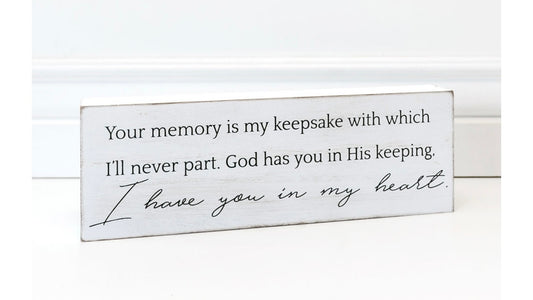 Your memory is my keepsake with which
I'll never part. God has you in His keeping,
I have you in my heart.